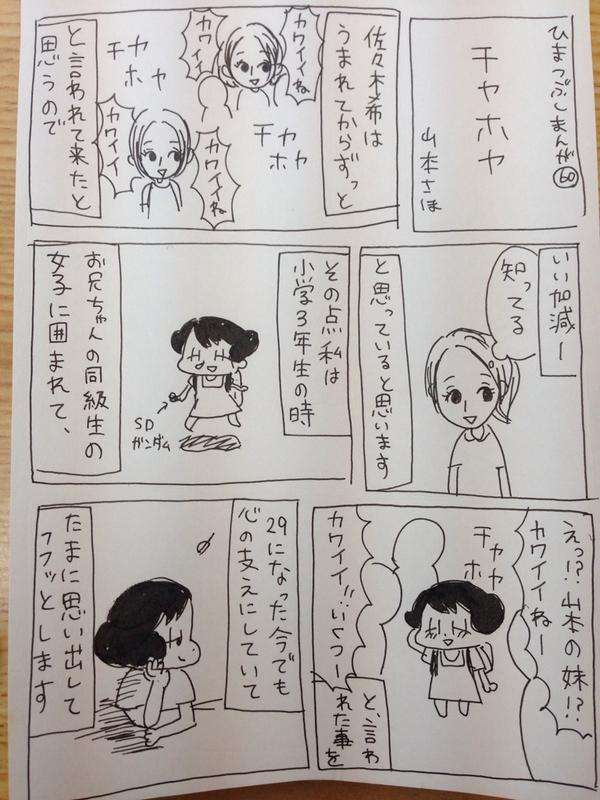 ひまつぶしまんが60
チヤホヤ
山本さほ
佐々木希は
うまれてからずっと
カワイイね
カワイイ
チヤ
ホヤ
カワイイね
チヤ
ホヤ
カワイイ
と言われて来たと
思うので
いい加減ー
知ってる
と思っていると思います
その点私は
小学3年生の時
SD
ガンダム
お兄ちゃんの同級生の
女子に囲まれて、
えっ!?山本の妹!?
カワイイねー
チヤ
ホヤ
カワイイ!!いくつー
と、言わ
れた事を
29になった今でも
心の支えにしていて
たまに思い出して
フフッとします